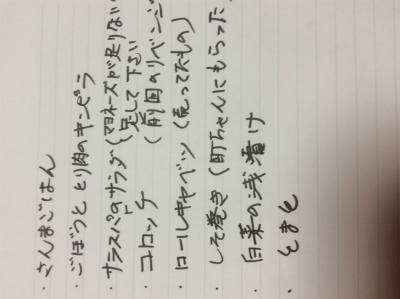 ・さんまごはん
・ごぼうととり肉のキンピラ
・サラスパのサラダ(マヨネーズが足りない
足して下さい
・コロッケ(前回のリベンジ
・ロールキャベツ(売ってたもの)
・しそ巻き(町ちゃんにもらった
・白菜の浅漬け
・とまと